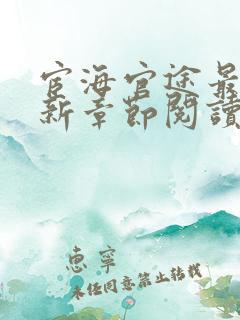 宦海官途最
新章節閱讀
惠寧
未经同意禁止转载